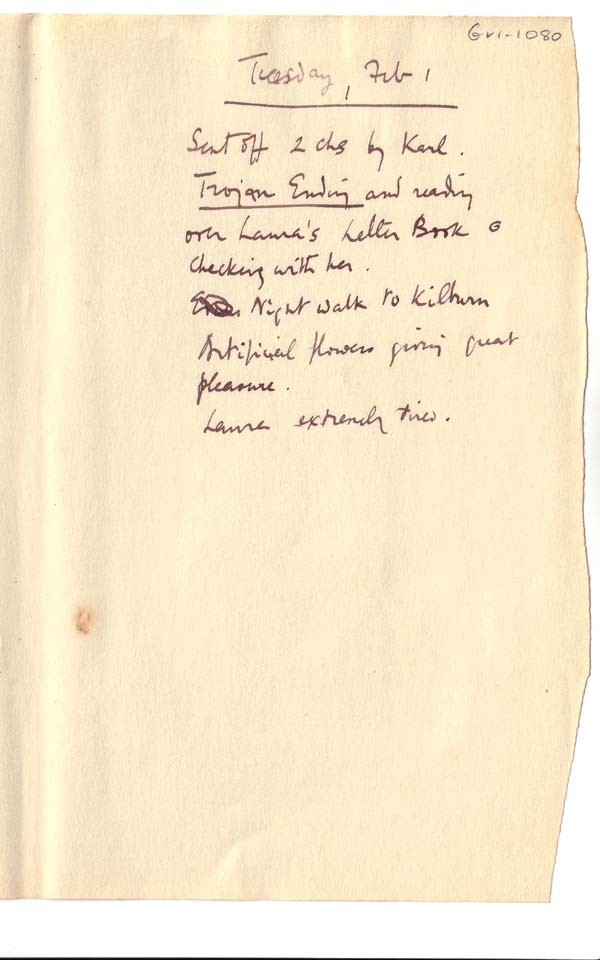 GV1-1080
Tuesday, Feb 1
Sent off 2 chs by Karl.
Trojan Ending and reading
over Laura's Letter Book &
checking with her.
Night walk to Kilburn
Artificial flowers giving great
pleasure.
Laura extremely tired.